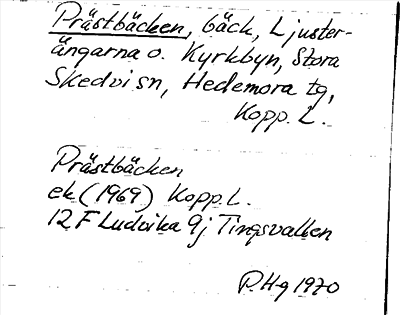 Prästbäcken, bäck, Ljuster-
ängarna o. Kyrkbyn, Stora
Skedvi sn, Hedemora tg,
Kopp. L.
Prästbäcken
ek (1969) Kopp. L.
12 F Ludvika 9j Tingsvallen
P.Hg 1970